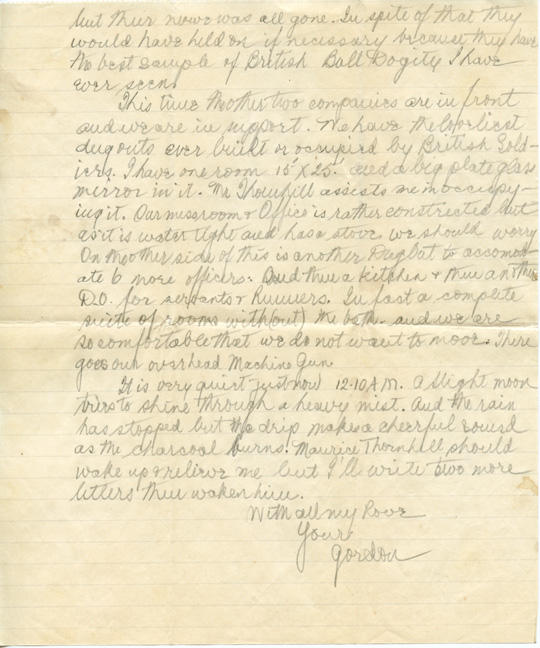 but their nerve was all gone. In spite of that they
would have held on if necessary because they have
the best sample of British Bull Dogity I have
ever seen.
This time the other two companies are in front
and we are in support. We have the loveliest
dugouts ever built or occupied by British Sold-
iers. I have one room 15' x 25' and a big plate glass
mirror in it. Mr Thornhill assists me in occupy-
ing it. Our messroom & Office is rather constricted but
as it is water tight and has a stove we should worry
On the other side of this is another Dug Out to accomod-
ate 6 more officers. And then a kitchen & then another
D.O. for servants & Runners. In fact a complete
suite of rooms with(out) the bath and we are
so comfortable that we do not want to move. There
goes our overhead Machine Gun.
It is very quiet just now 12.10 A.M. A slight moon
tries to shine through a heavy mist. And the rain
has stopped but the drip makes a cheerful sound
as the charcoal burns. Maurice Thornhill should
wake up & relieve me but I'll write two more
letters then waken him.
With all my Love
Your
Gordon